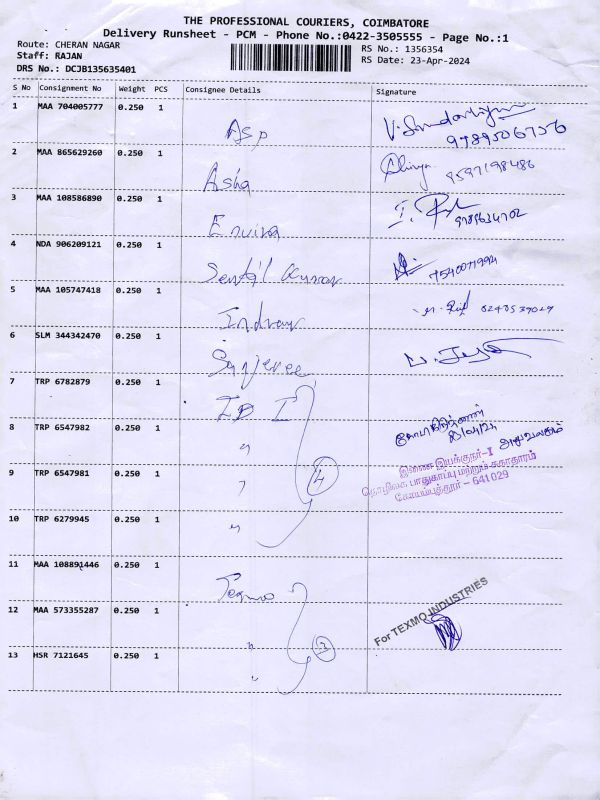 THE PROFESSIONAL COURIERS, COIMBATORE
Delivery Runsheet - PCM - Phone No.:0422-3505555 - Page No.:1
Route: CHERAN NAGAR
RS No.: 1356354
Staff: RAJAN
RS Date: 23-Apr-2024
DRS No.: DCJB135635401
S No Consignment No Weight PCS Consignee Details Signature
1 MAA 704005777 0.250 1 Asp
2 MAA 865629260 0.250 1 Asha 9597198486
3 MAA 108586890 0.250 1
4 NDA 906209121 0.250 1 Sentil Kumar
5 MAA 105747418 0.250 1
6 SLM 344342470 0.250 1
7 TRP 6782879 0.250 1
8 TRP 6547982 0.250 1 "
இணை இயக்குநர்-I
தொழிலக பாதுகாப்பு மற்றும் சுகாதாரம்
கோயம்புத்தூர் - 641029
9 TRP 6547981 0.250 1 " 4
10 TRP 6279945 0.250 1 "
11 MAA 108891446 0.250 1
For TEXMO INDUSTRIES
12 MAA 573355287 0.250 1 " 3
13 HSR 7121645 0.250 1 "